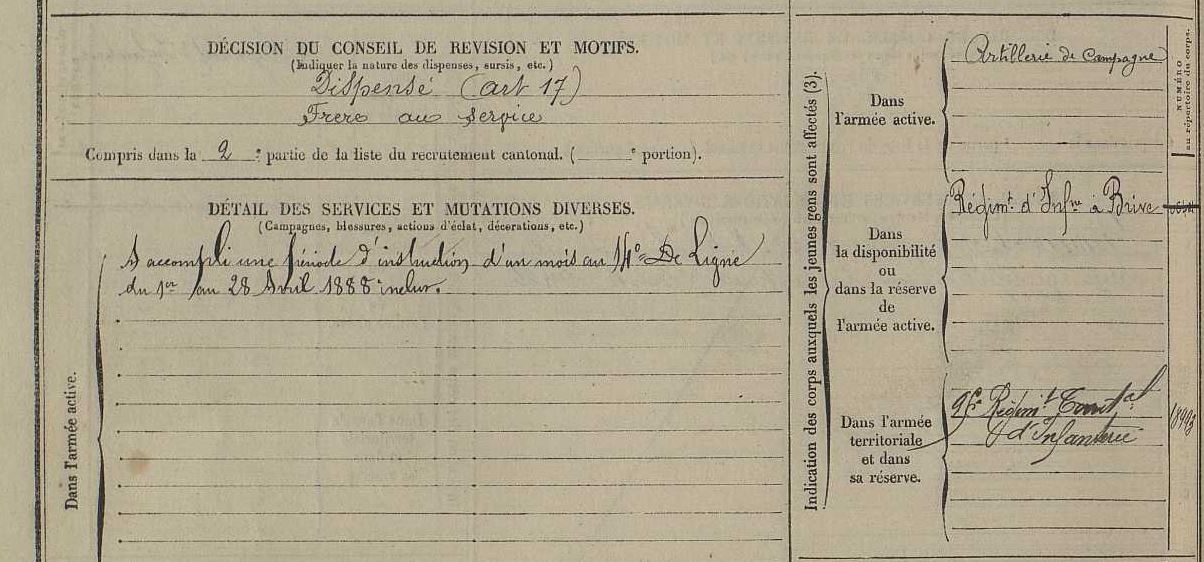 DÉCISION DU CONSEIL DE REVISION ET MOTIFS.
(Indiquer la nature des dispenses, sursis, etc.)
Dispensé (art 17)
Frere au Service
Compris dans la 2e partie de la liste du recrutement cantonal. ( e portion).
DÉTAIL DES SERVICES ET MUTATIONS DIVERSES.
(Campagnes, blessures, actions d'éclat, décorations, etc.)
A accompli une période d'instruction d'un mois au 14e De Ligne
du 1er au 28 Avril 1888 inclus.
Dans l'armée active.
Indication des corps auxquels les jeunes gens sont affectés (3).
Dans
l'armée active.
Artillerie de Campagne
Dans
la disponibilité
ou
dans la réserve
de
l'armée active.
Régimt. d'Infrie à Brive
Dans l'armée
territoriale
et dans
sa réserve.
Régimt Territal
d'Infanterie
NUMÉRO
au répertoire du corps.